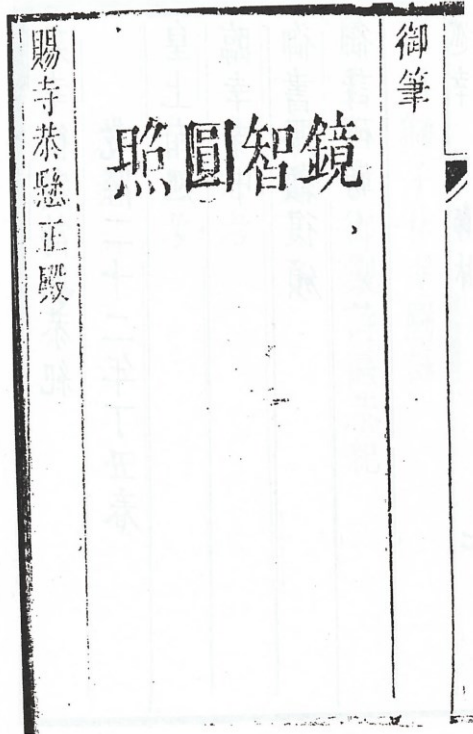 御筆
鏡智圓照
賜寺恭懸正殿